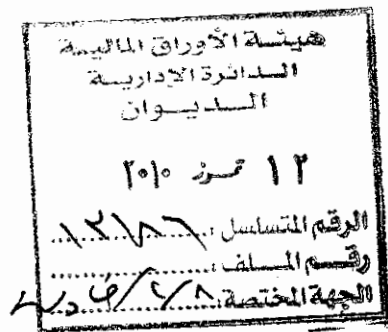 هيئة الأوراق المالية
الدائرة الإدارية
الديوان
١٢ تموز ٢٠١٠
الرقم المتسلسل:
رقم الملف:
الجهة المختصة: